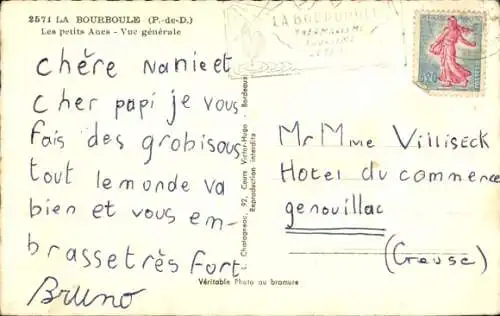 2571 LA BOURBOULE (P.-de-D.)
Les petits Anes - Vue générale
chère Nanie et
cher papi je vous
fais des grobisous
tout le monde va
bien et vous em-
brasse très fort
Bruno
L. Chatagneau, 92, Cours Victor-Hugo - Bordeaux
Reproduction interdite
Véritable Photo au bromure
LA BOURBOULE
0,20
Mr Mme Villiseck
Hotel du commerce
genouillac
(Creuse)